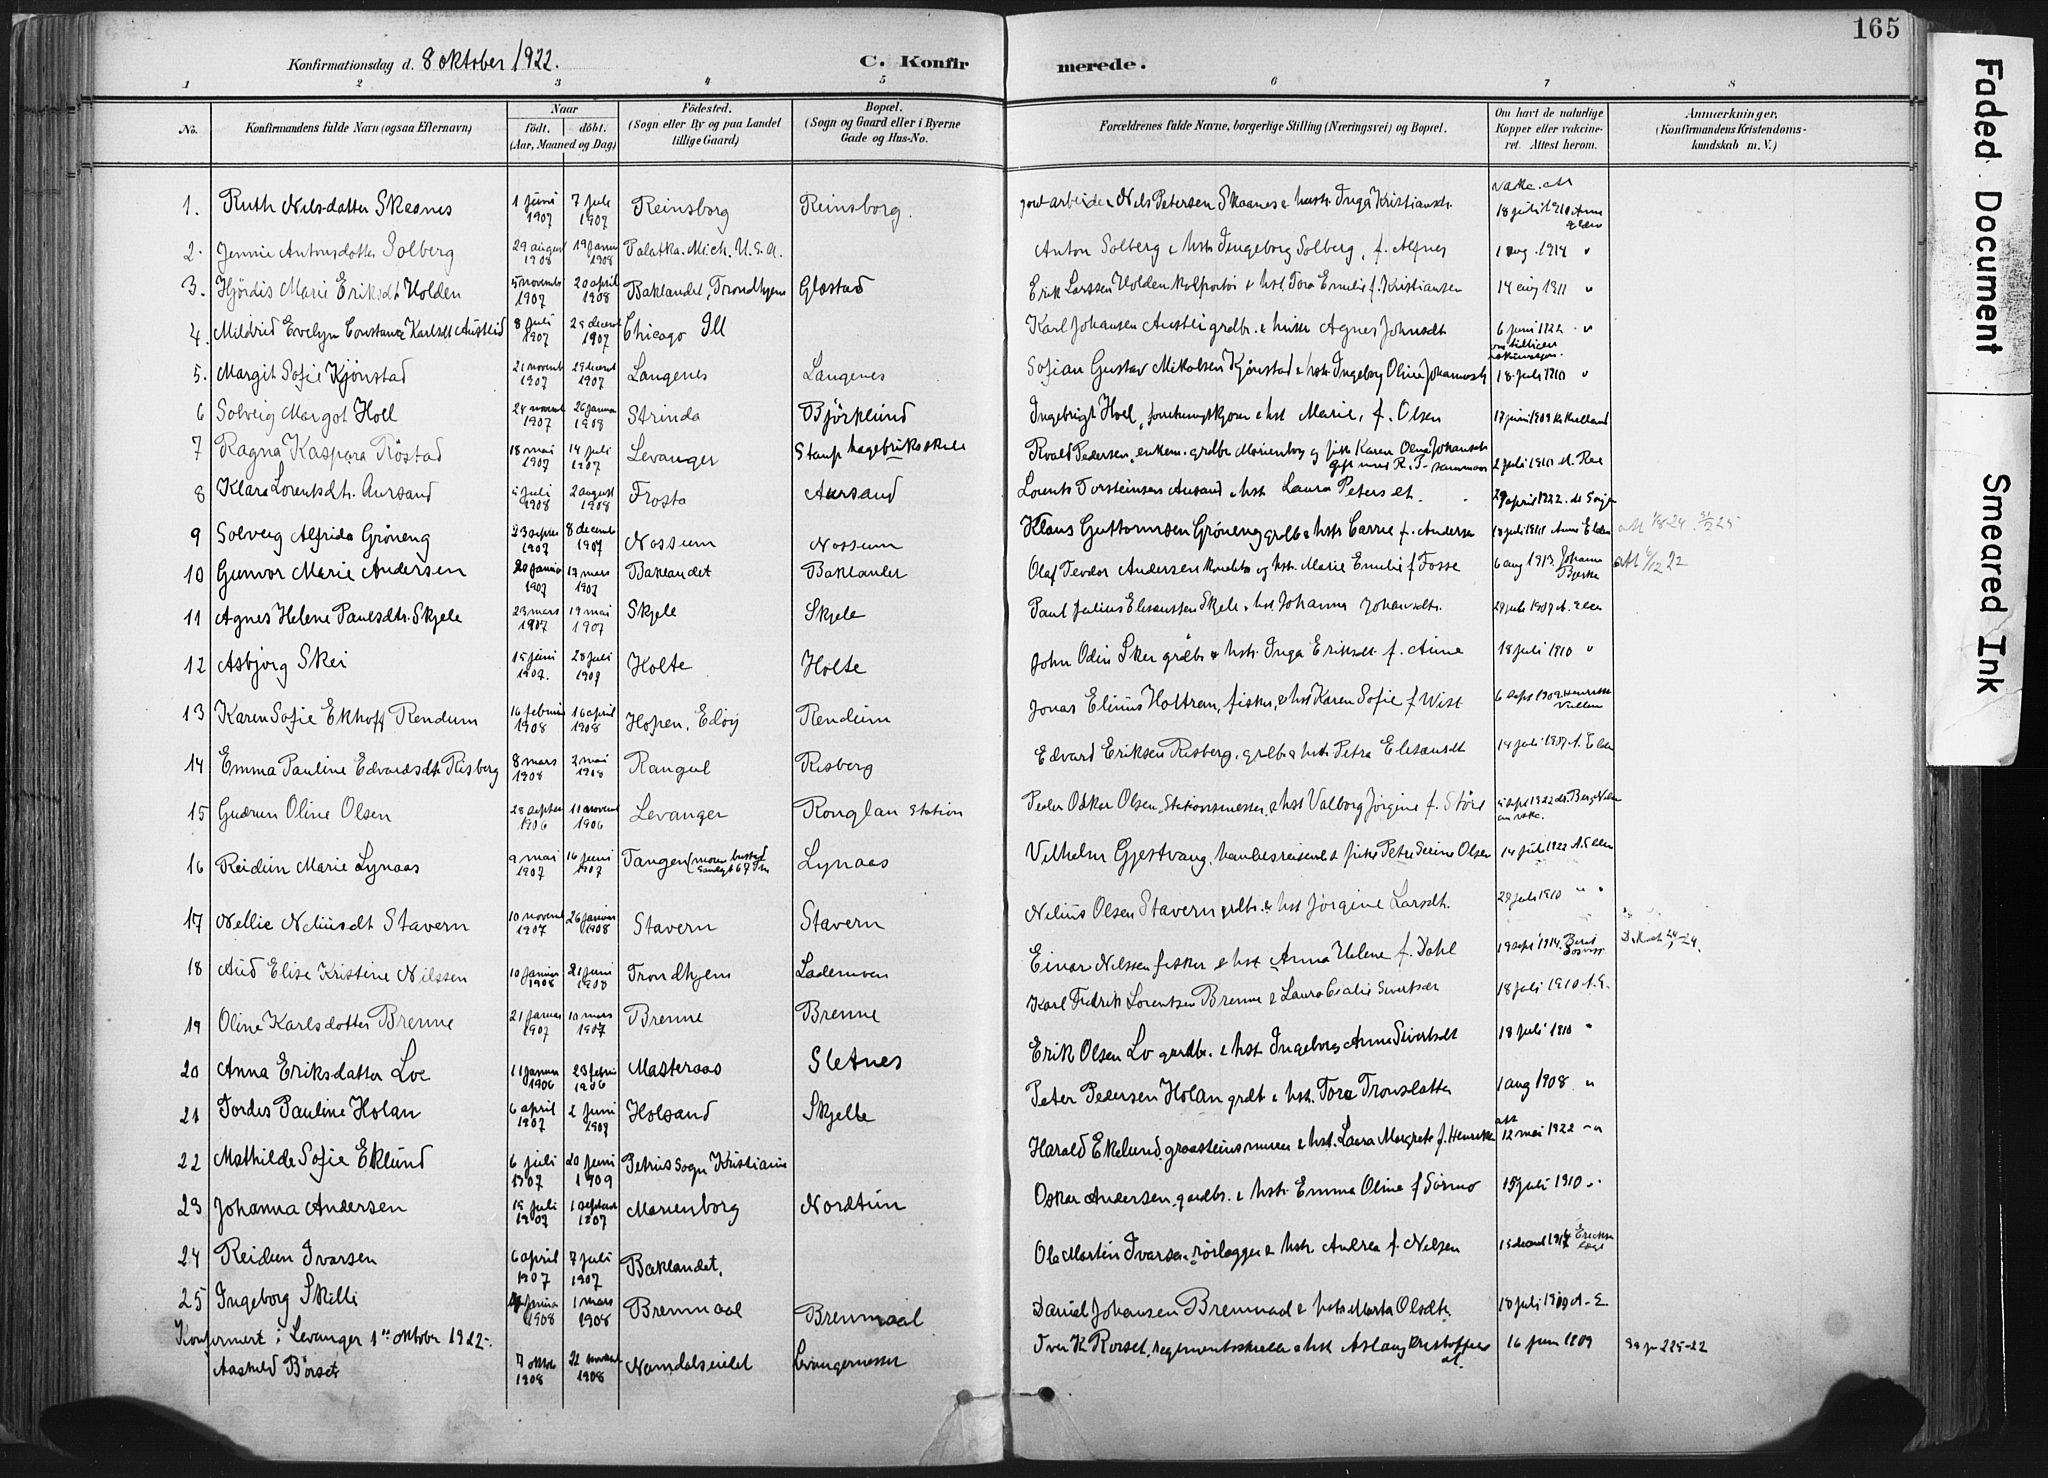 165
Konfirmationsdag d. 8 oktober 1922.
C. Konfirmerede.
1 2 3 4 5 6 7 8
No.
Konfirmandens fulde Navn (ogsaa Efternavn)
Naar
födt. döbt.
(Aar, Maaned og Dag)
Födested.
(Sogn eller By og paa Landet tillige Gaard)
Bopæl.
(Sogn og Gaard eller i Byerne Gade og Hus-No.
Forældrenes fulde Navne, borgerlige Stilling (Næringsvei) og Bopæl.
Om havt de naturlige Kopper eller vakcineret. Attest herom.
Anmærkninger,
(Konfirmandens Kristendomskundskab m. V.)
1. Ruth Nilsdatter Skesnes 1 juni 1907 7 juli 1907 Reinsborg Reinsborg. Nils Petersen Skaanes & hustr. Inga Kristiansdt. 18 juli 1910
2. Jennie Antonsdatter Solberg 29 august 1908 19 januar 1908 Palatka. Mich. U.S.A. Anton Solberg & hstr Ingeborg Solberg, f. Alfnes 1 aug. 1914 "
3. Hjördis Marie Eriksdt Holden 5 novembr 1907 20 april 1908 Baklandet, Trondhjem Glæstad Erik Larssen Holden kolportør & hst Tora Emilie f. Kristiansen 14 aug 1911 "
4. Mildrid Evelyn Constance Karlsdt Austlid 8 juli 1907 decemb 1907 Chicago Ill Karl Johansen Austli grdbr. & hustr Agnes Johnsdt 6 juni 1922 "
5. Margit Sofie Kjönstad 21 novemb 1907 1907 Langenes Langenes Sofian Gustav Mikalsen Kjönstad & hstr Ingeborg Oline 18 juli 1910 "
6 Solveig Margot Holl 24 novemb 1907 26 januar 1908 Strinda Björklund Ingebrigt Holl, & hst Marie, f. Olsen 17 juni 1909
7 Ragna Kaspara Röstad 18 mai 1907 14 juli 1907 Levanger Staup hagebruksskole Roald Pedersen, enkem. grdbr Marienborg og Karen Oline Johansdt 2 juli 1910
8 Klara Lorentsdtr. Aursand juli 1908 2 august 1908 Frosta Aursand Lorents Torsteinsen Aursand & hst Laura Petersdt. 29 april 1922.
9 Solveig Alfrida Gröneng 23 septbr 1907 8 decemb 1907 Nossum Nossum Klaus Guttormsen Gröneng grdb & hstr Carrie f. Andersen 18 juli 1910 Anne Elden
10 Gunvor Marie Andersen 20 januar 1907 17 mars 1907 Baklandet Baklandet Olaf Teodor Andersen og hstr. Marie Emilie f Fosse 6 aug 1913. Johanna att 6/12 22
11 Agnes Helene Paulsdtr. Skjele 23 mars 1907 19 mai 1907 Skjele Skjele Paul Julius Eliseussen Skjele & hst Johanna Johansdtr. 29 juli 1907 A. Elden
12 Asbjörg Skei 15 juni 1907. 28 juli 1907 Holte Holte John Odin Skei grdbr & hstr. Inga Eriksdt. f. Aune 18 juli 1910 "
13 Karen Sofie Ekhoff Rendum 16 februar 1908 16 april 1908 Hopen, Edöy Rendum Jonas Elinus Holtram, fisker, & hst Karen Sofie f Wist 6 sept 1909
14 Emma Pauline Edvardsdtr Risberg 8 mars 1908 2 mai 1908 Rangul Risberg Edvard Eriksen Risberg, grdbr & hstr Petra Eliseusdt 14 juli 1907 A. Elden
15 Gudrun Oline Olsen 28 septbr 1906 11 novemb 1906 Levanger Ronglan station Peder Oskar Olsen, Stationsmester, & hst Valborg Jörgine f. Störe sept 1922
16 Reidun Marie Lynaas 9 mai 1907 16 juni 1907 Tangen (moren bustad Lynaas Vilhelm Gjestvang, handelsreisende & Petra Serine Olsen 14 juli 1922 A. Elden
17 Nellie Neliusdt Stavern 10 novemb 1907 26 januar 1908 Stavern Stavern Nelius Olsen Stavern grdbr. & hst Jörgine Larsdt. 29 juli 1910 " "
18 Aud Elise Kristine Nilssen 10 januar 1908 21 juni 1908 Trondhjem Lademoen Einar Nilssen fisker & hst Anna Helene f. Dahl 19 sept 1914.
19 Oline Karlsdatter Brenne 21 januar 1907 10 mars 1907 Brenne Brenne Karl Fredrik Lorentsen Brenne & Laura Cecilie Sivertsdt 18 juli 1910 A. E.
20 Anna Eriksdatter Loe 11 januar 1906 23 febru 1906 Masteraas Sletnes Erik Olsen Lo gardbr. & hst Ingeborg Anna Sivertsdt 18 juli 1910 "
21 Tordis Pauline Holan 6 april 1907 2 juni 1907 Holsand Skjelle Peter Pedersen Holan grdb & hst. Tora Tronsdatter 1 aug 1908 "
22 Mathilde Sofie Eklund 6 juli 1907 20 juni 1909 Petrus sogn Kristiania Harald Ekelund graasteinsmurer & hst. Laura Margrete f. Henriksen att 12 mai 1922 "
23 Johanna Andersen juli 1907 1 septemb 1907 Marienborg Nordtun Oskar Andersen, gardbr. & hstr Emma Oline f Sörmo 15 juli 1910 "
24 Reidun Ivarsen 6 april 1907 7 juli 1907 Baklandet, Ole Martin Ivarsen, rörlegger & hstr Andrea f. Nilsen
25 Ingeborg Skille januar 1908 1 mars 1908 Bremnaal Bremnaal Daniel Johansen Bremnaal & hstr Marta Olsdtr 18 juli 1909 A. E.
Konfirmert i Levanger 1ste oktober 1922.
Aashild Börset 7 oktob 1908 22 novemb 1908 Namdalseidet Levangernesset Iver K Rorset, & hst Aslaug Kristoffersdt. 16 juni 1909
Faded Document
Smeared Ink